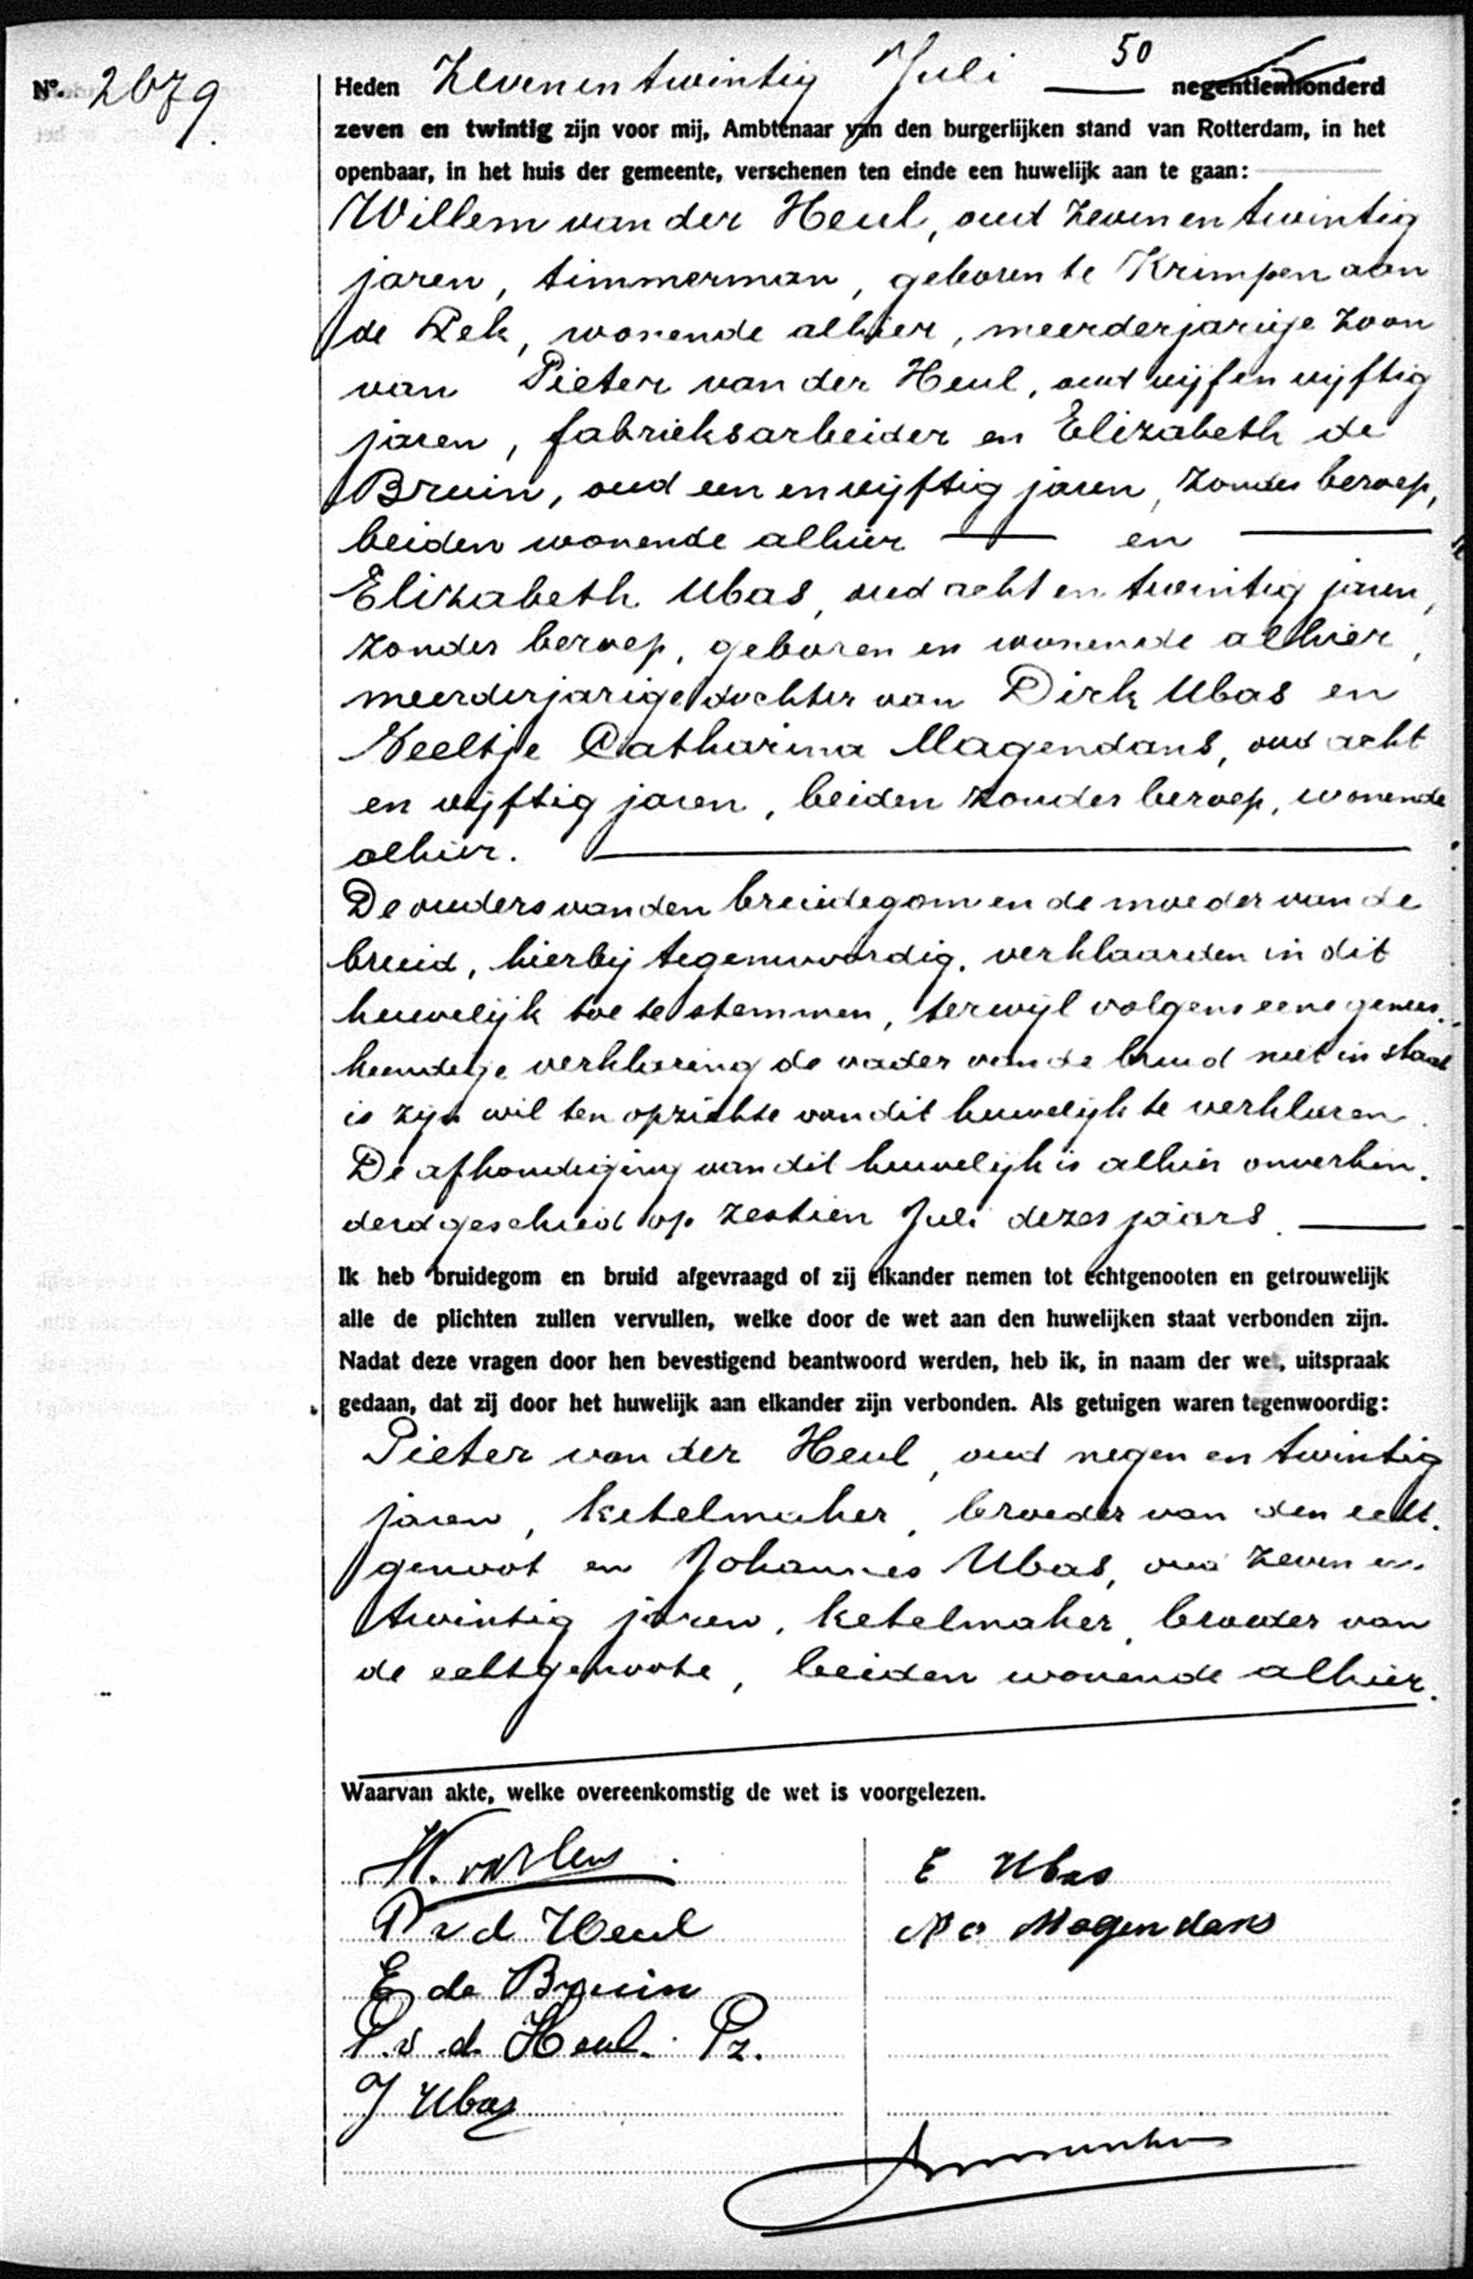 50
No. 2679. Heden Zeven en twintig Juli — negentienhonderd
zeven en twintig zijn voor mij, Ambtenaar van den burgerlijken stand van Rotterdam, in het
openbaar, in het huis der gemeente, verschenen ten einde een huwelijk aan te gaan:
Willem van der Heul, oud zeven en twintig
jaren, timmerman, geboren te Krimpen aan
de Lek, wonende alhier, meerderjarige zoon
van Pieter van der Heul, oud vijf en vijftig
jaren, fabrieksarbeider en Elizabeth de
Bruin, oud een en vijftig jaren, zonder beroep,
beiden wonende alhier — en —
Elizabeth Ubas, oud acht en twintig jaren,
zonder beroep, geboren en wonende alhier,
meerderjarige dochter van Dirk Ubas en
Neeltje Catharina Magendans, oud acht
en vijftig jaren, beiden zonder beroep, wonende
alhier. —
De ouders van den bruidegom en de moeder van de
bruid, hierbij tegenwoordig, verklaarden in dit
huwelijk toe te stemmen, terwijl volgens eene genees-
kundige verklaring de vader van de bruid niet in staat
is zijn wil ten opzichte van dit huwelijk te verklaren.
De afkondiging van dit huwelijk is alhier onverhin-
derd geschied op zestien Juli dezes jaars. —
Ik heb bruidegom en bruid afgevraagd of zij elkander nemen tot echtgenooten en getrouwelijk
alle de plichten zullen vervullen, welke door de wet aan den huwelijken staat verbonden zijn.
Nadat deze vragen door hen bevestigend beantwoord werden, heb ik, in naam der wet, uitspraak
gedaan, dat zij door het huwelijk aan elkander zijn verbonden. Als getuigen waren tegenwoordig:
Pieter van der Heul, oud negen en twintig
jaren, ketelmaker, broeder van den echt-
genoot en Johannes Ubas, oud zeven en
twintig jaren, ketelmaker, broeder van
de echtgenoote, beiden wonende alhier.
Waarvan akte, welke overeenkomstig de wet is voorgelezen.
E Ubas
P v d Heul
Magendans
E de Bruin
P. v. d. Heul. Pz.
J Ubas